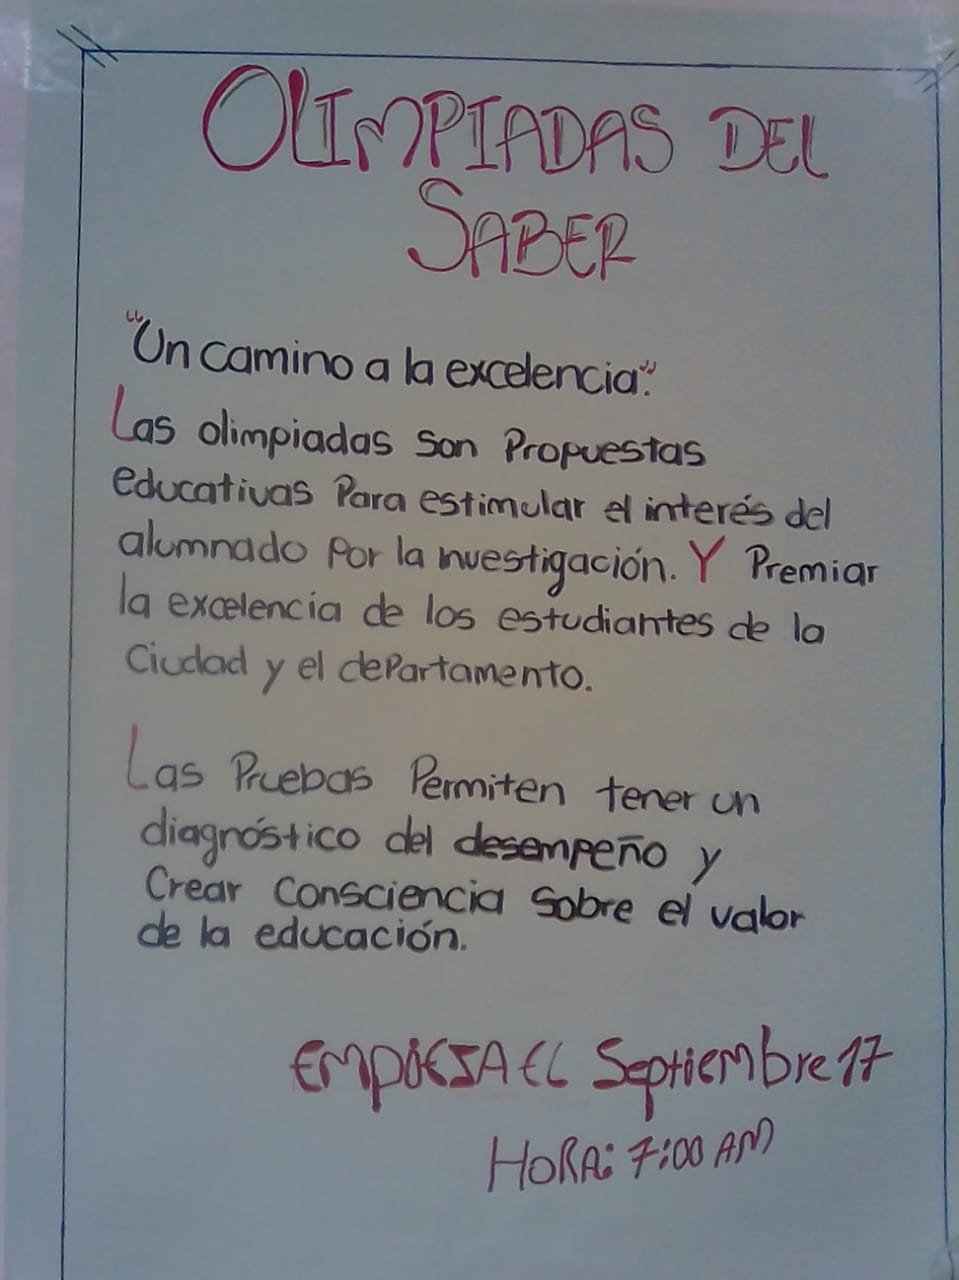 OLIMPIADAS DEL
SABER
"Un camino a la excelencia".
Las olimpiadas son Propuestas
educativas Para estimular el interés del
alumnado Por la investigación. Y Premiar
la excelencia de los estudiantes de la
Ciudad y el dePartamento.
Las Pruebas Permiten tener un
diagnóstico del desempeño y
Crear Consciencia Sobre el valor
de la educación.
EMPiESA EL Septiembre 17
HORA: 7:00 AM